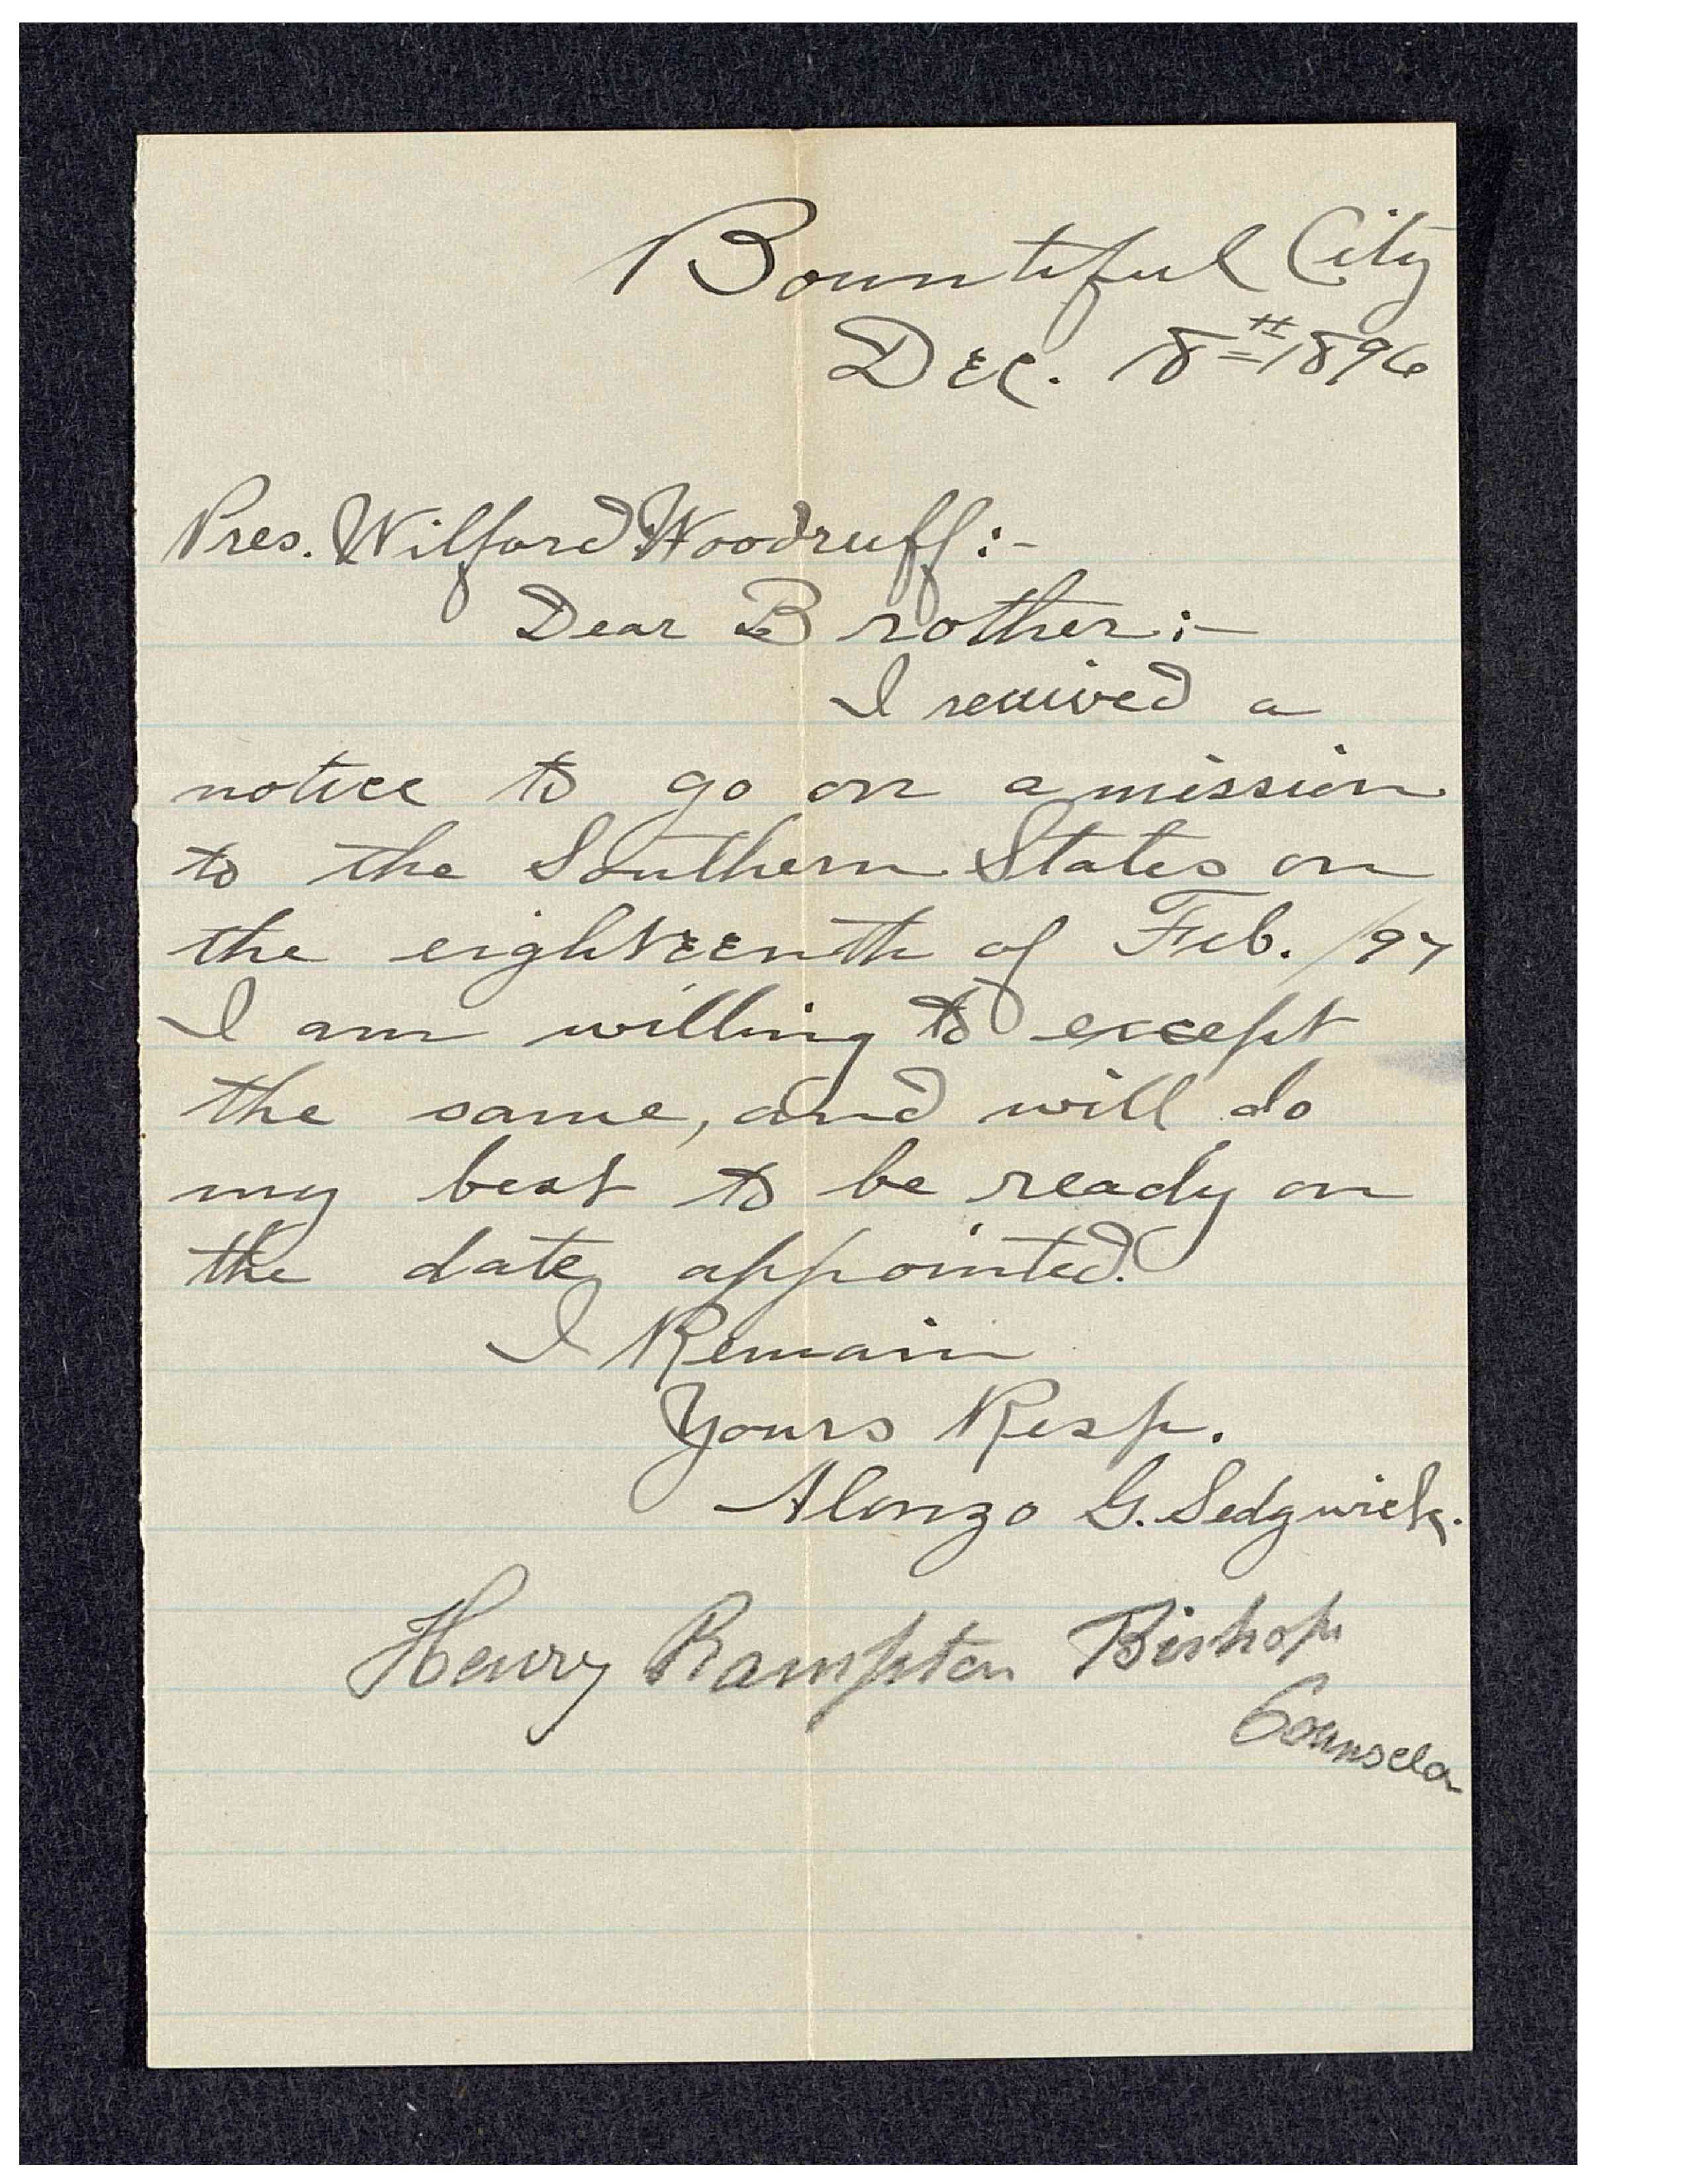 Bountiful City
Dec. 8th 1896
Pres. Wilford Woodruff:-
Dear Brother:-
I recuived a
notice to go on a mission
to the Southern States on
the eighteenth of Feb. /97
I am willing to except
the same, and will do
my best to be ready on
the date appointed.
I Remain
Yours Resp.
Alonzo G. Sedgwick.
Henry Rampton Bishop
Counselor